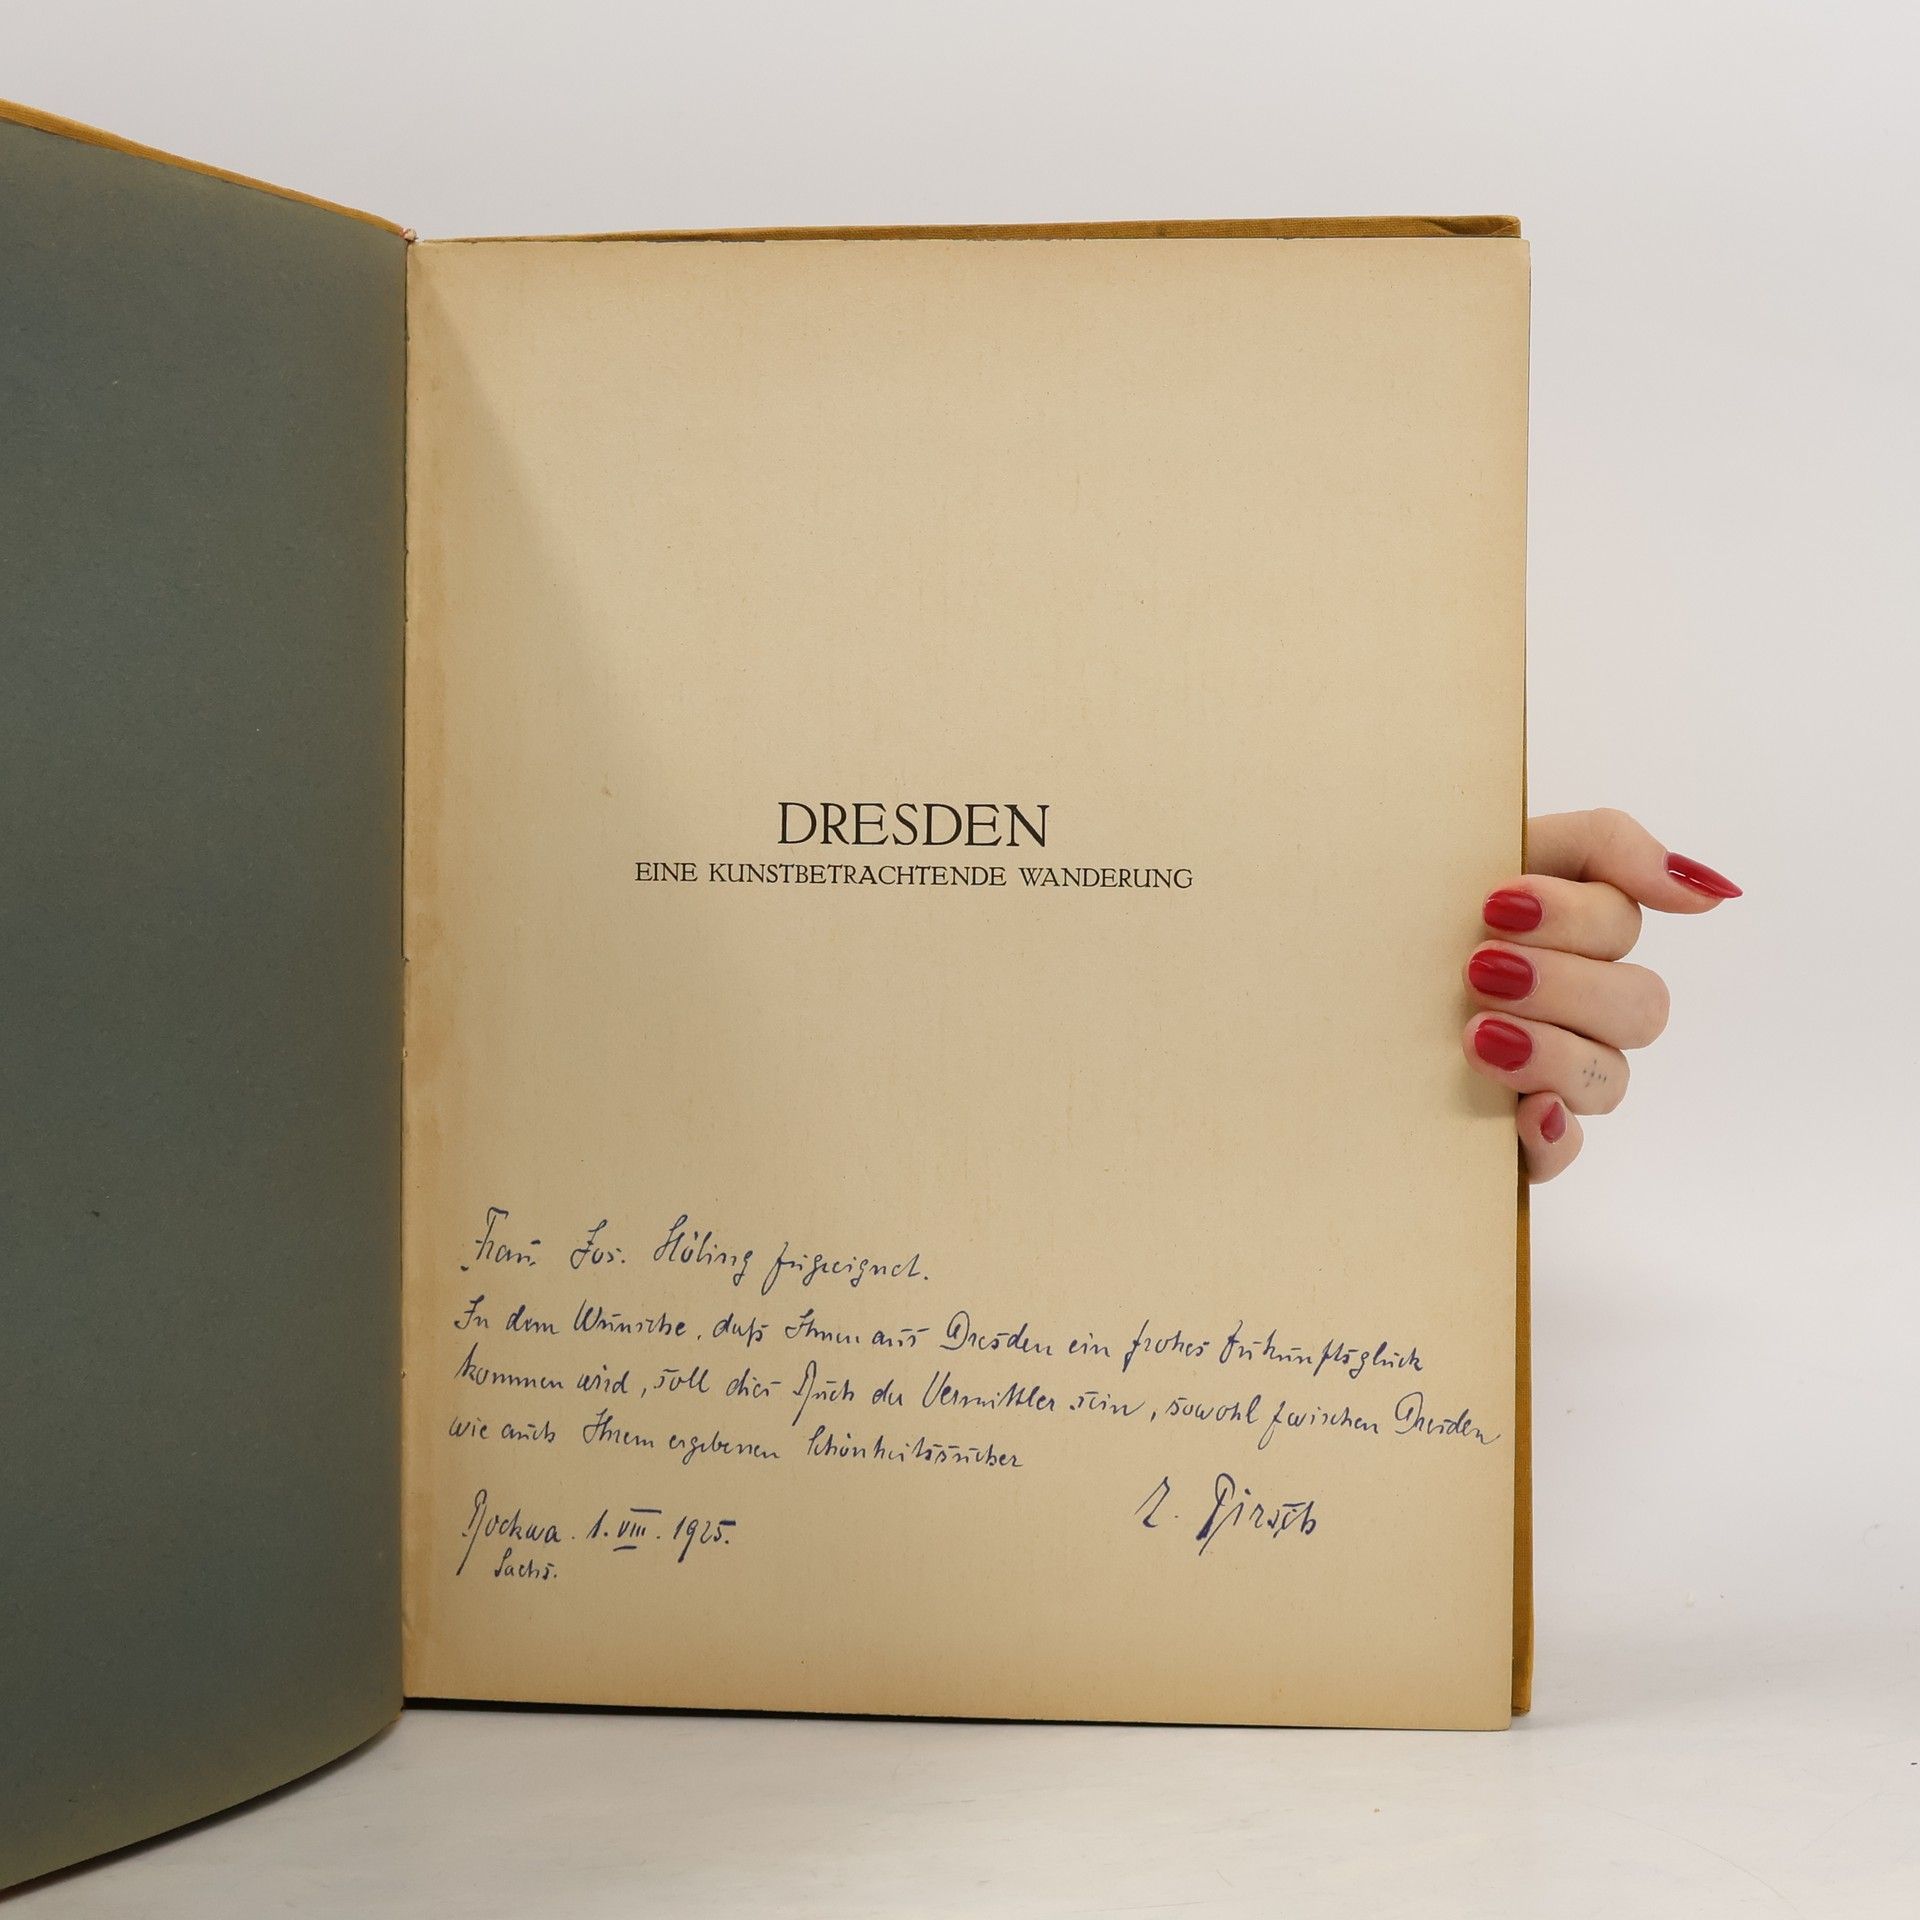 DRESDEN
EINE KUNSTBETRACHTENDE WANDERUNG
Frau Jos. Höling zugeeignet.
In dem Wunsche, daß Ihnen aus Dresden ein frohes Zukunftsglück
kommen wird, soll dies Buch der Vermittler sein, sowohl zwischen Dresden
wie auch Ihrem ergebenen Schönheitssucher
Bockwa. 1. VIII. 1925.
Sachs.